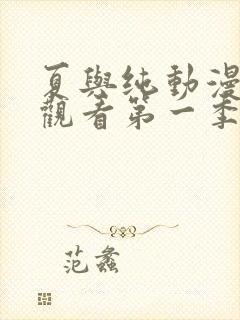 夏與纯動漫
觀看第一季
范蠡